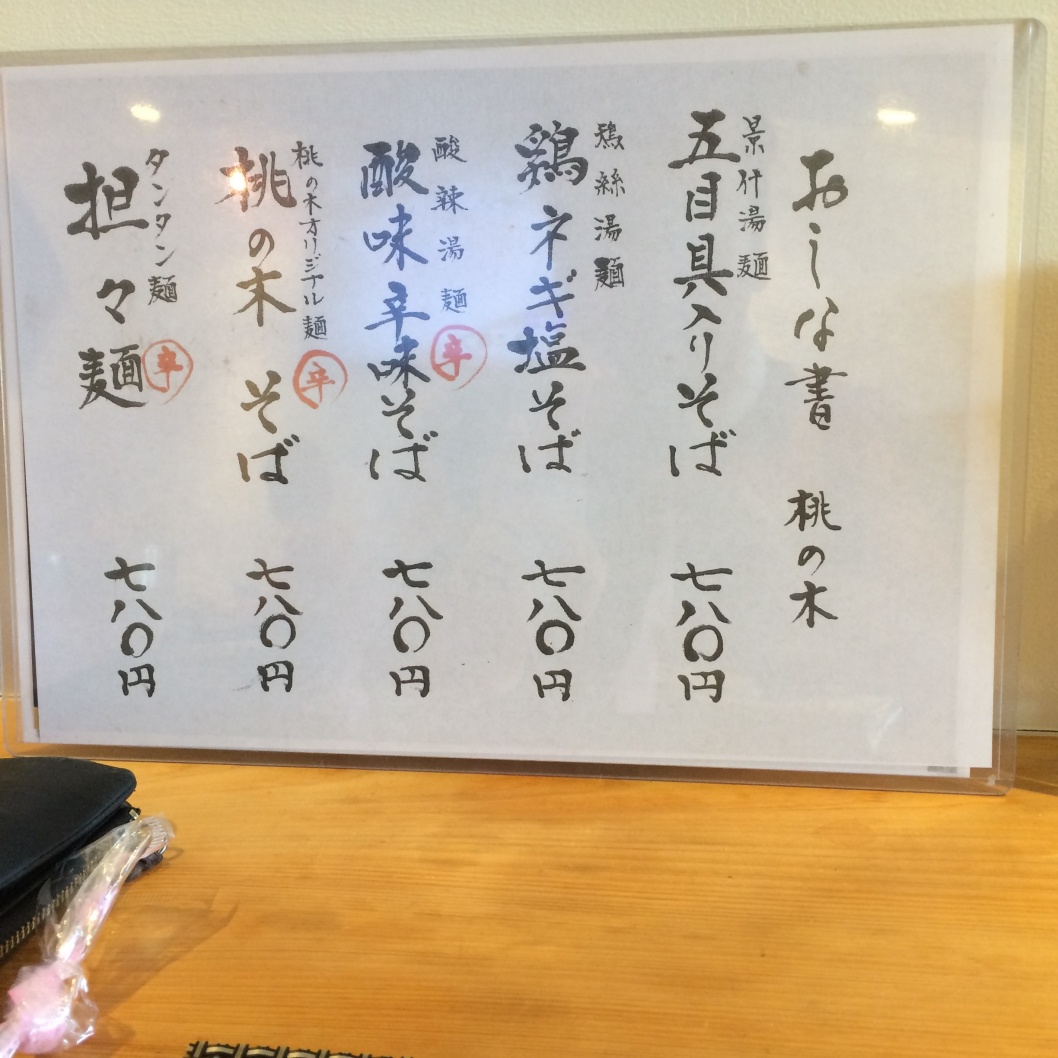 おしな書 桃の木
景什湯麺
五目具入りそば 七八〇円
鶏絲湯麺
鶏ネギ塩そば 七八〇円
酸辣湯麺
辛
酸味辛味そば 七八〇円
桃の木オリジナル麺
辛
桃の木そば 七八〇円
タンタン麺
辛
担々麺 七八〇円